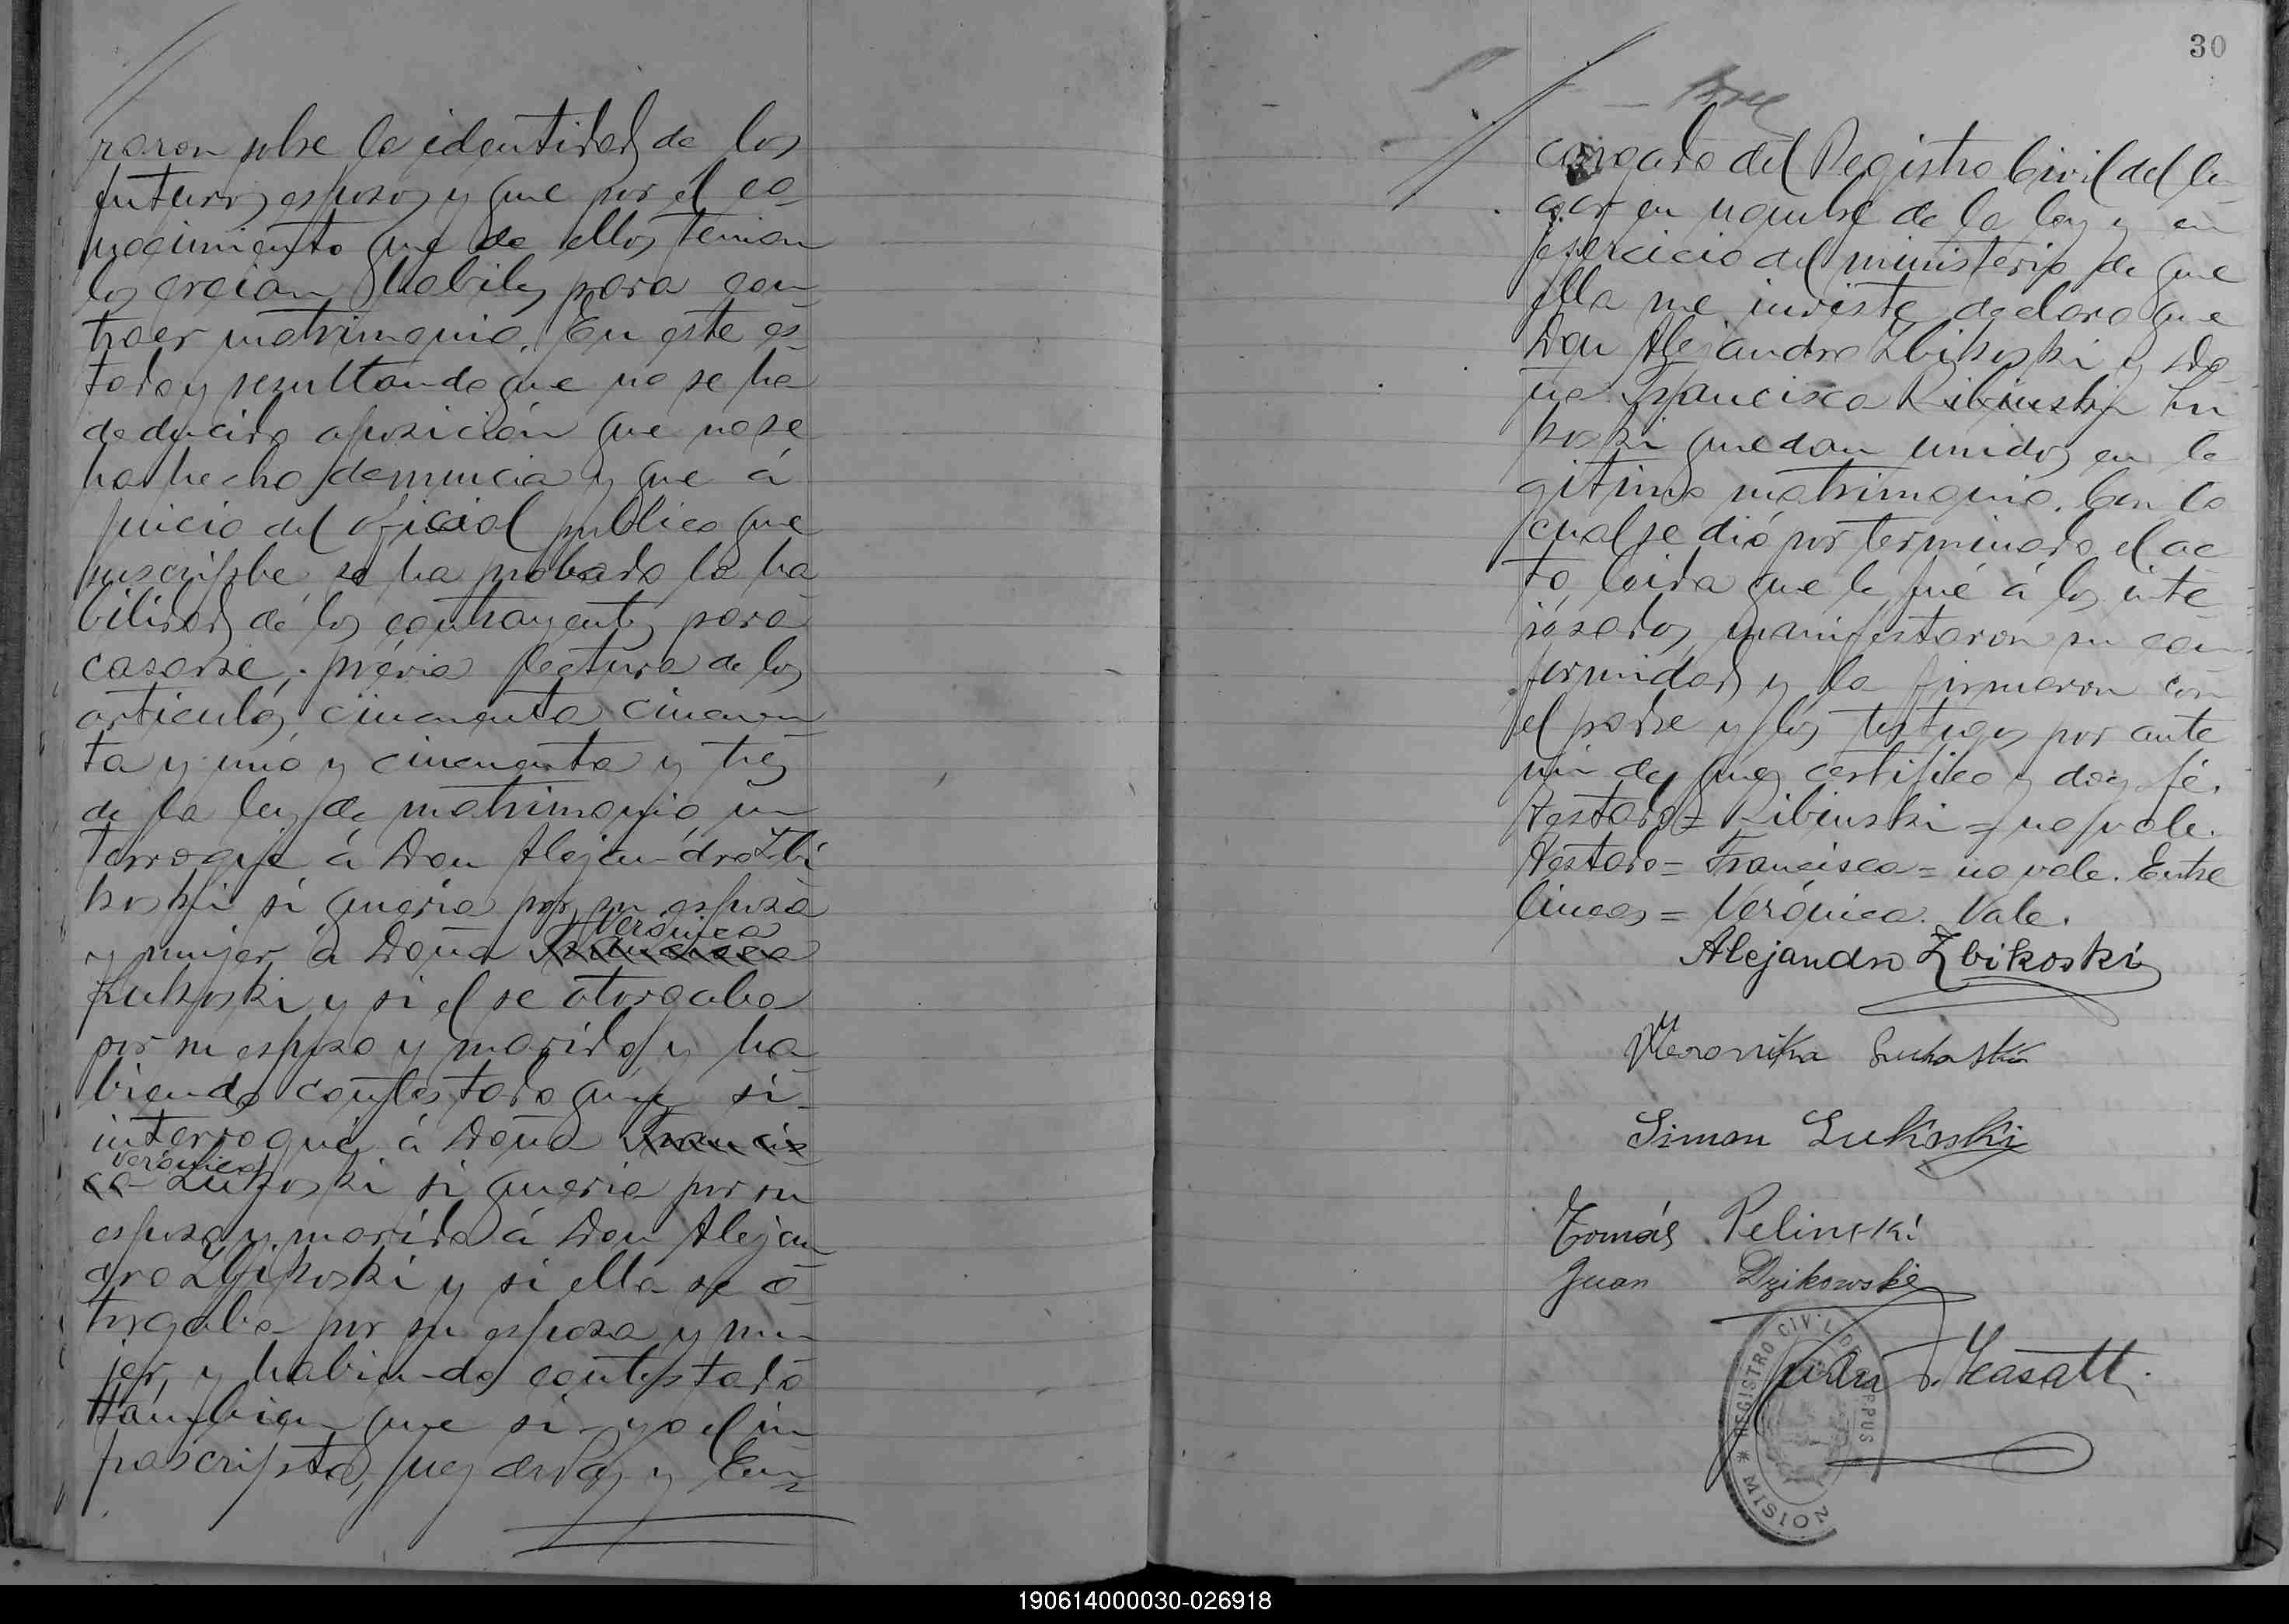 raron sobre la identidad de los
futuros esposos y que por el co-
nocimiento que de ellos tenian
los creian habiles para con-
traer matrimonio. En este es-
tado y resultando que no se ha
deducido oposición que no se
ha hecho denuncia y que á
juicio del oficial publico que
suscribe se ha probado la ha-
bilidad de los contrayentes para
casarse, prévia lectura de los
articulos cincuenta cincuen-
ta y uno y cincuenta y tres
de la ley de matrimonio in-
terrogué á Don Alejandro Zbi-
koski si queria por su esposa
Verónica
y mujer á Doña Francisca
Lukoski y si el se otorgaba
por su esposo y marido y ha-
biendo contestado que si-
interrogué á Doña Francis-
Verónica
ca Lukoski si queria por su
esposo y marido á Don Alejan-
dro Zbikoski y si ella se o-
torgaba por su esposa y mu-
jer, y habiendo contestado
tambien que si- yo el in-
frascripto, Juez de Paz y En-
30
cargado del Registro Civil del lu-
gar en nombre de la ley y en
ejercicio del ministerio de que
ella me inviste declaro que
Don Alejandro Zbikoski y Do-
ña Francisca Ribinski Lu-
koski quedan unidos en le-
gitimo matrimonio. Con lo
cual se dió por terminado el ac-
to, leida que le fué á los inte-
resados, manifestaron su con-
formidad y la firmaron con
el padre y los testigos por ante
mi de que certifico y doy fé.
Testado = Ribinski = no vale.
Testado = Francisca = no vale. Entre
lineas = Verónica. Vale.
Alejandro Zbikoski
Weronika
Simon Lukoski
Tomás Pelinski
Juan Dzikowski
REGISTRO CIVIL DE
MISION
190614000030-026918